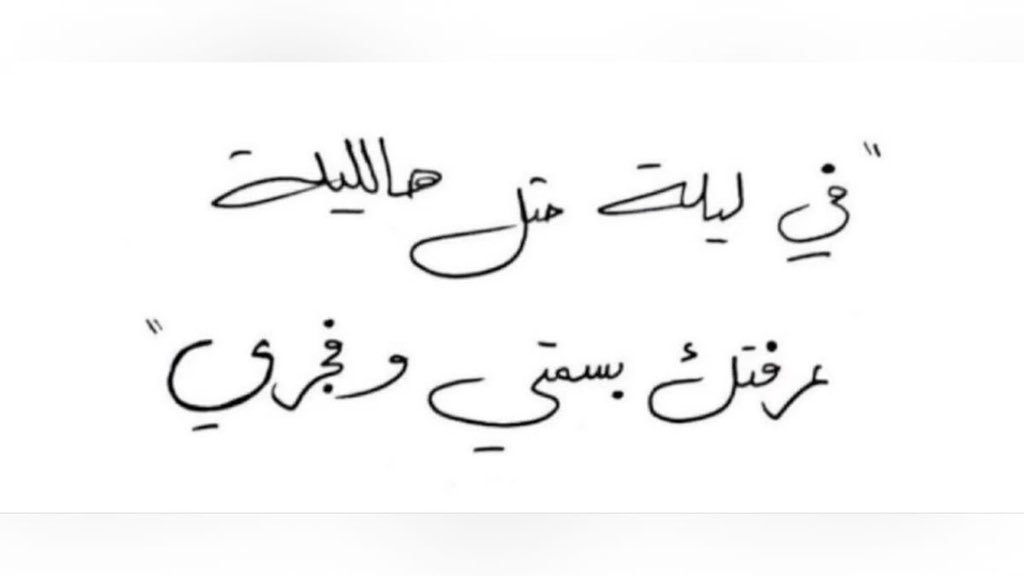 "في ليلة متل هالليلة
عرفتك بسمتي وفجري"